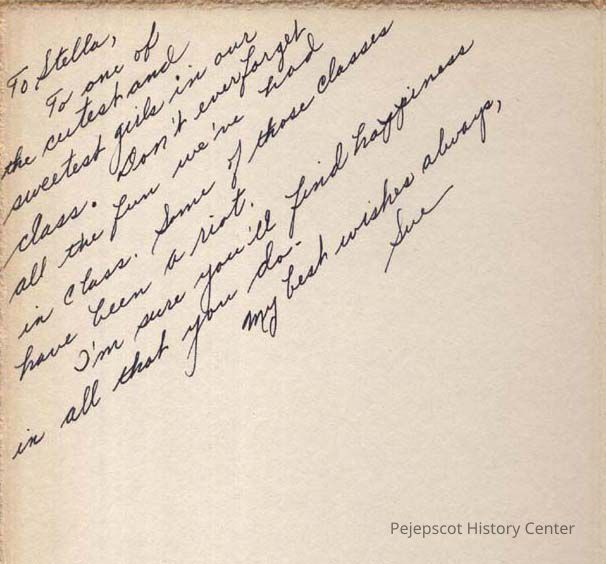 To Stella,
To one of
the cutest and
sweetest girls in our
class. Don't ever forget
all the fun we've had
in class. Some of those classes
have been a riot.
I'm sure you'll find happiness
in all that you do.
My best wishes always,
Sue
Pejepscot History Center